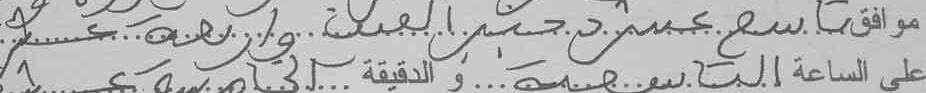 موافق تاسع عشر دجنبر الفين واربعة عشر
على الساعة التاسعة و الدقيقة الخامسة عشر